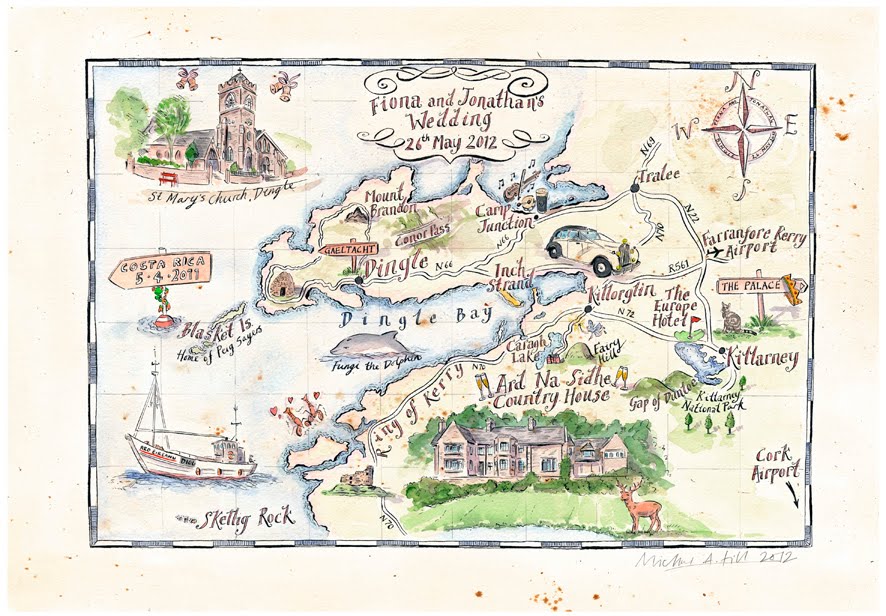 Fiona and Jonathan's
Wedding
26th May 2012
N
W
E
S
St Mary's Church, Dingle
N69
Tralee
Mount
Brandon
Camp
Junction
Conor Pass
N22
GAELTACHT
Dingle
N66
N66
Farranfore Kerry
Airport
R561
COSTA RICA
5·4·2011
Inch
Strand
Killorglin
The
Europe
Hotel
THE PALACE
Blasket Is
Home of Peig Sayers
Dingle Bay
N72
Fungi the Dolphin
Caragh
Lake
Fairy
Hill
Killarney
N70
Ring of Kerry
Ard Na-Sidhe
Country House
Gap of Dunloe
Killarney
National Park
Cork
Airport
Skellig Rock
N70
Michael A. Hill 2012